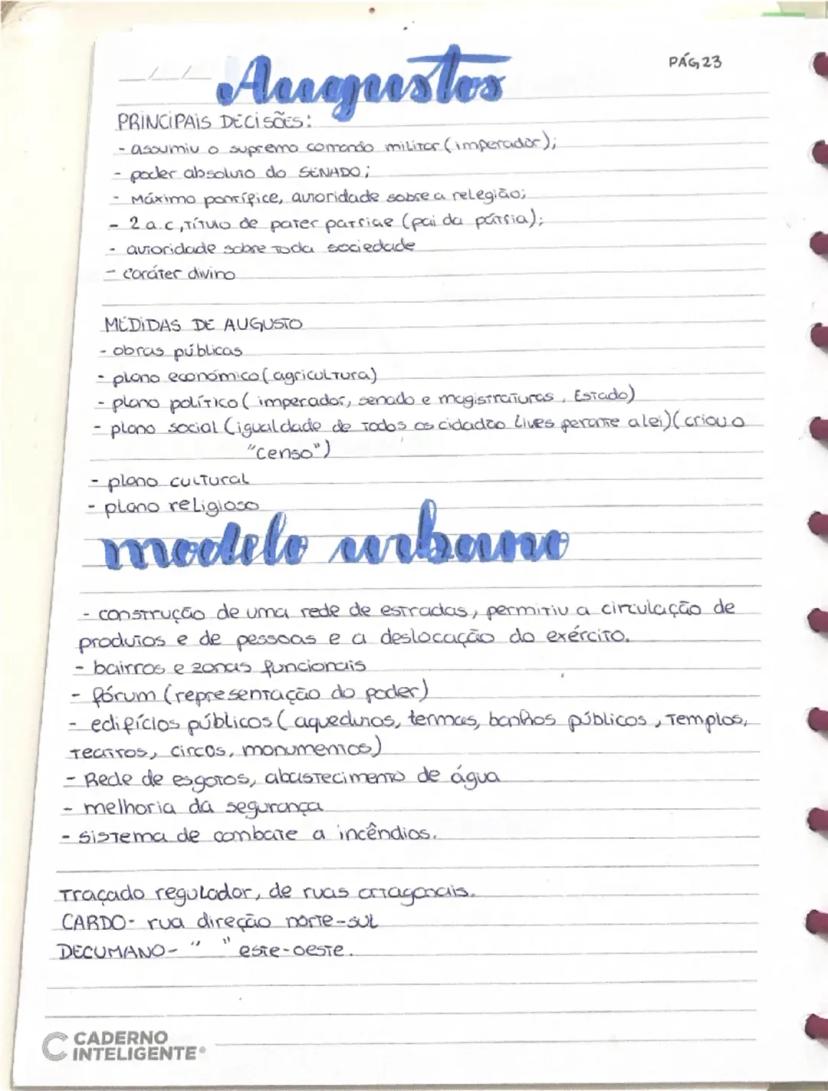 PÁG,23
Auugustos
PRINCIPAIS DECISÕES:
- assumiu o supremo comando militar (imperador);
- poder absoluto do SENADO;
- Máximo pontífice, autoridade sobre a relegião;
- 2 a.c, título de pater patriae (pai da pátria);
- autoridade sobre toda sociedade
- caráter divino
MEDIDAS DE AUGUSTO
- obras públicas
- plano económico (agricultura)
- plano político ( imperador, senado e magistraturas, Estado)
- plano social (igualdade de todos os cidadão livres perante a lei) ( criou o
"censo")
- plano cultural
- plano religioso
modelo urbano
- construção de uma rede de estradas, permitiu a circulação de
produtos e de pessoas e a deslocação do exército.
- bairros e zonas funcionais
- fórum (representação do poder)
- edifícios públicos ( aquedutos, termas, banhos públicos, templos,
teatros, circos, monumentos)
- Rede de esgotos, abastecimento de água
- melhoria da segurança
- sistema de combate a incêndios.
Traçado regulador, de ruas ortagonais.
CARDO- rua direção norte-sul
DECUMANO- " " este-oeste.
CADERNO
INTELIGENTE®